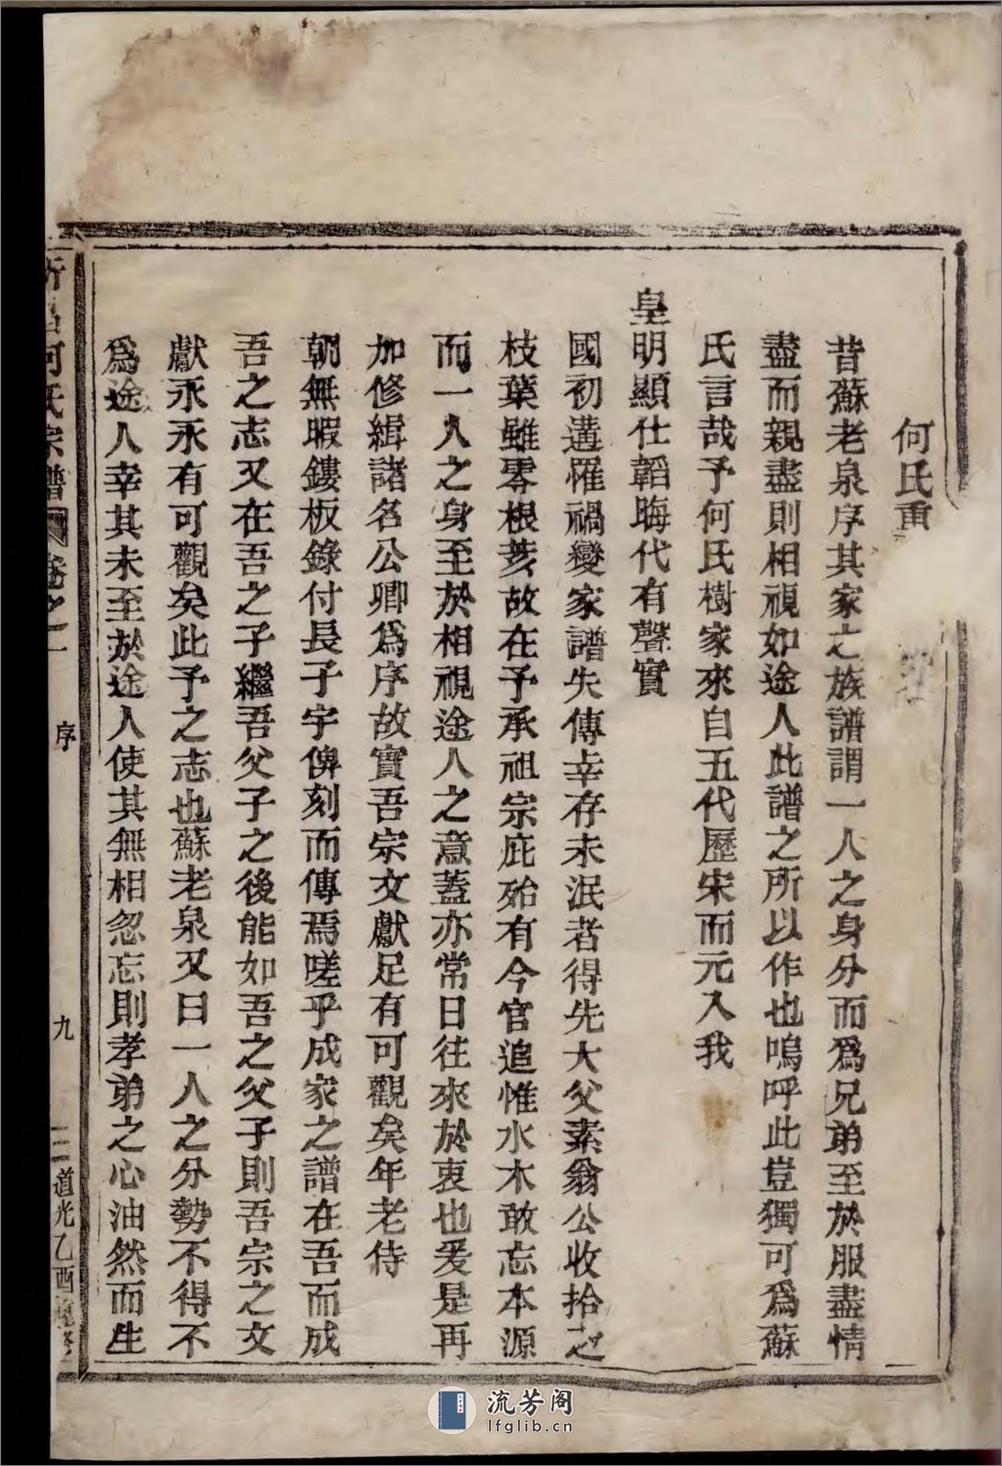 何氏重
昔蘇老泉序其家之族譜謂一人之身分而爲兄弟至於服盡情
盡而親盡則相視如途人此譜之所以作也嗚呼此豈獨可爲蘇
氏言哉予何氏樹家來自五代歷宋而元入我
皇明顯仕韜晦代有聲實
國初遘罹禍變家譜失傳幸存未泯者得先大父素翁公收拾之
枝葉雖零根荄故在予承祖宗庇殆有今官追惟水木敢忘本源
而一人之身至於相視途人之意蓋亦常日往來於衷也爰是再
加修緝諸名公卿爲序故實吾宗文獻足有可觀矣年老侍
朝無暇鏤板錄付長子宇俾刻而傳焉嗟乎成家之譜在吾而成
吾之志又在吾之子繼吾父子之後能如吾之父子則吾宗之文
獻永永有可觀矣此予之志也蘇老泉又曰一人之分勢不得不
爲途人幸其未至於途人使其無相忽忘則孝弟之心油然而生
昌何氏宗譜 卷之一 序 九 道光乙酉
流芳阁
lfglib.cn